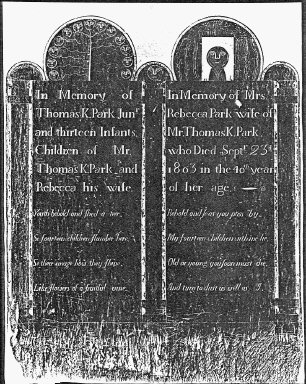 In Memory of
Thomas K. Park Junr
and thirteen Infants,
Children of Mr.
Thomas K. Park and
Rebecca his wife.
Youth behold and shed a tear,
Se fourteen children slumber here,
Se their image how they shine,
Like flowers of a fruitful vine.
In Memory of Mrs
Rebecca Park wife of
Mr. Thomas K. Park
who Died Septr. 23d
1803 in the 40th year
of her age.
Behold and see as you pass by,
My fourteen children with me lie
Old or young you soon must die
And turn to dust as well as I.